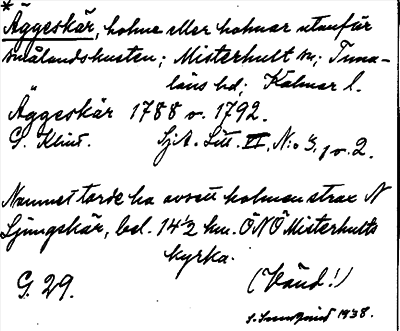 * Äggeskär, holme eller holmar utanför
Smålandskusten; Misterhult sn; Tuna-
läns hd; Kalmar l.
Äggeskär 1788 o. 1792.
G. Klint. SjA. Litt. II, N:o 3, 1 o. 2.
Namnet torde ha avsett holmen strax N
Ljungskär, bel. 14½ km. ÖNÖ Misterhults
kyrka.
G. 29. (Vänd!)
1938.